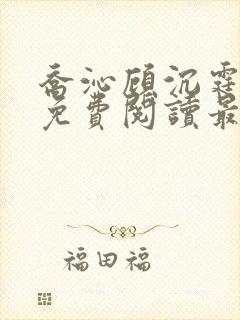 喬沁顧沉霆
免費閱讀最
福田福